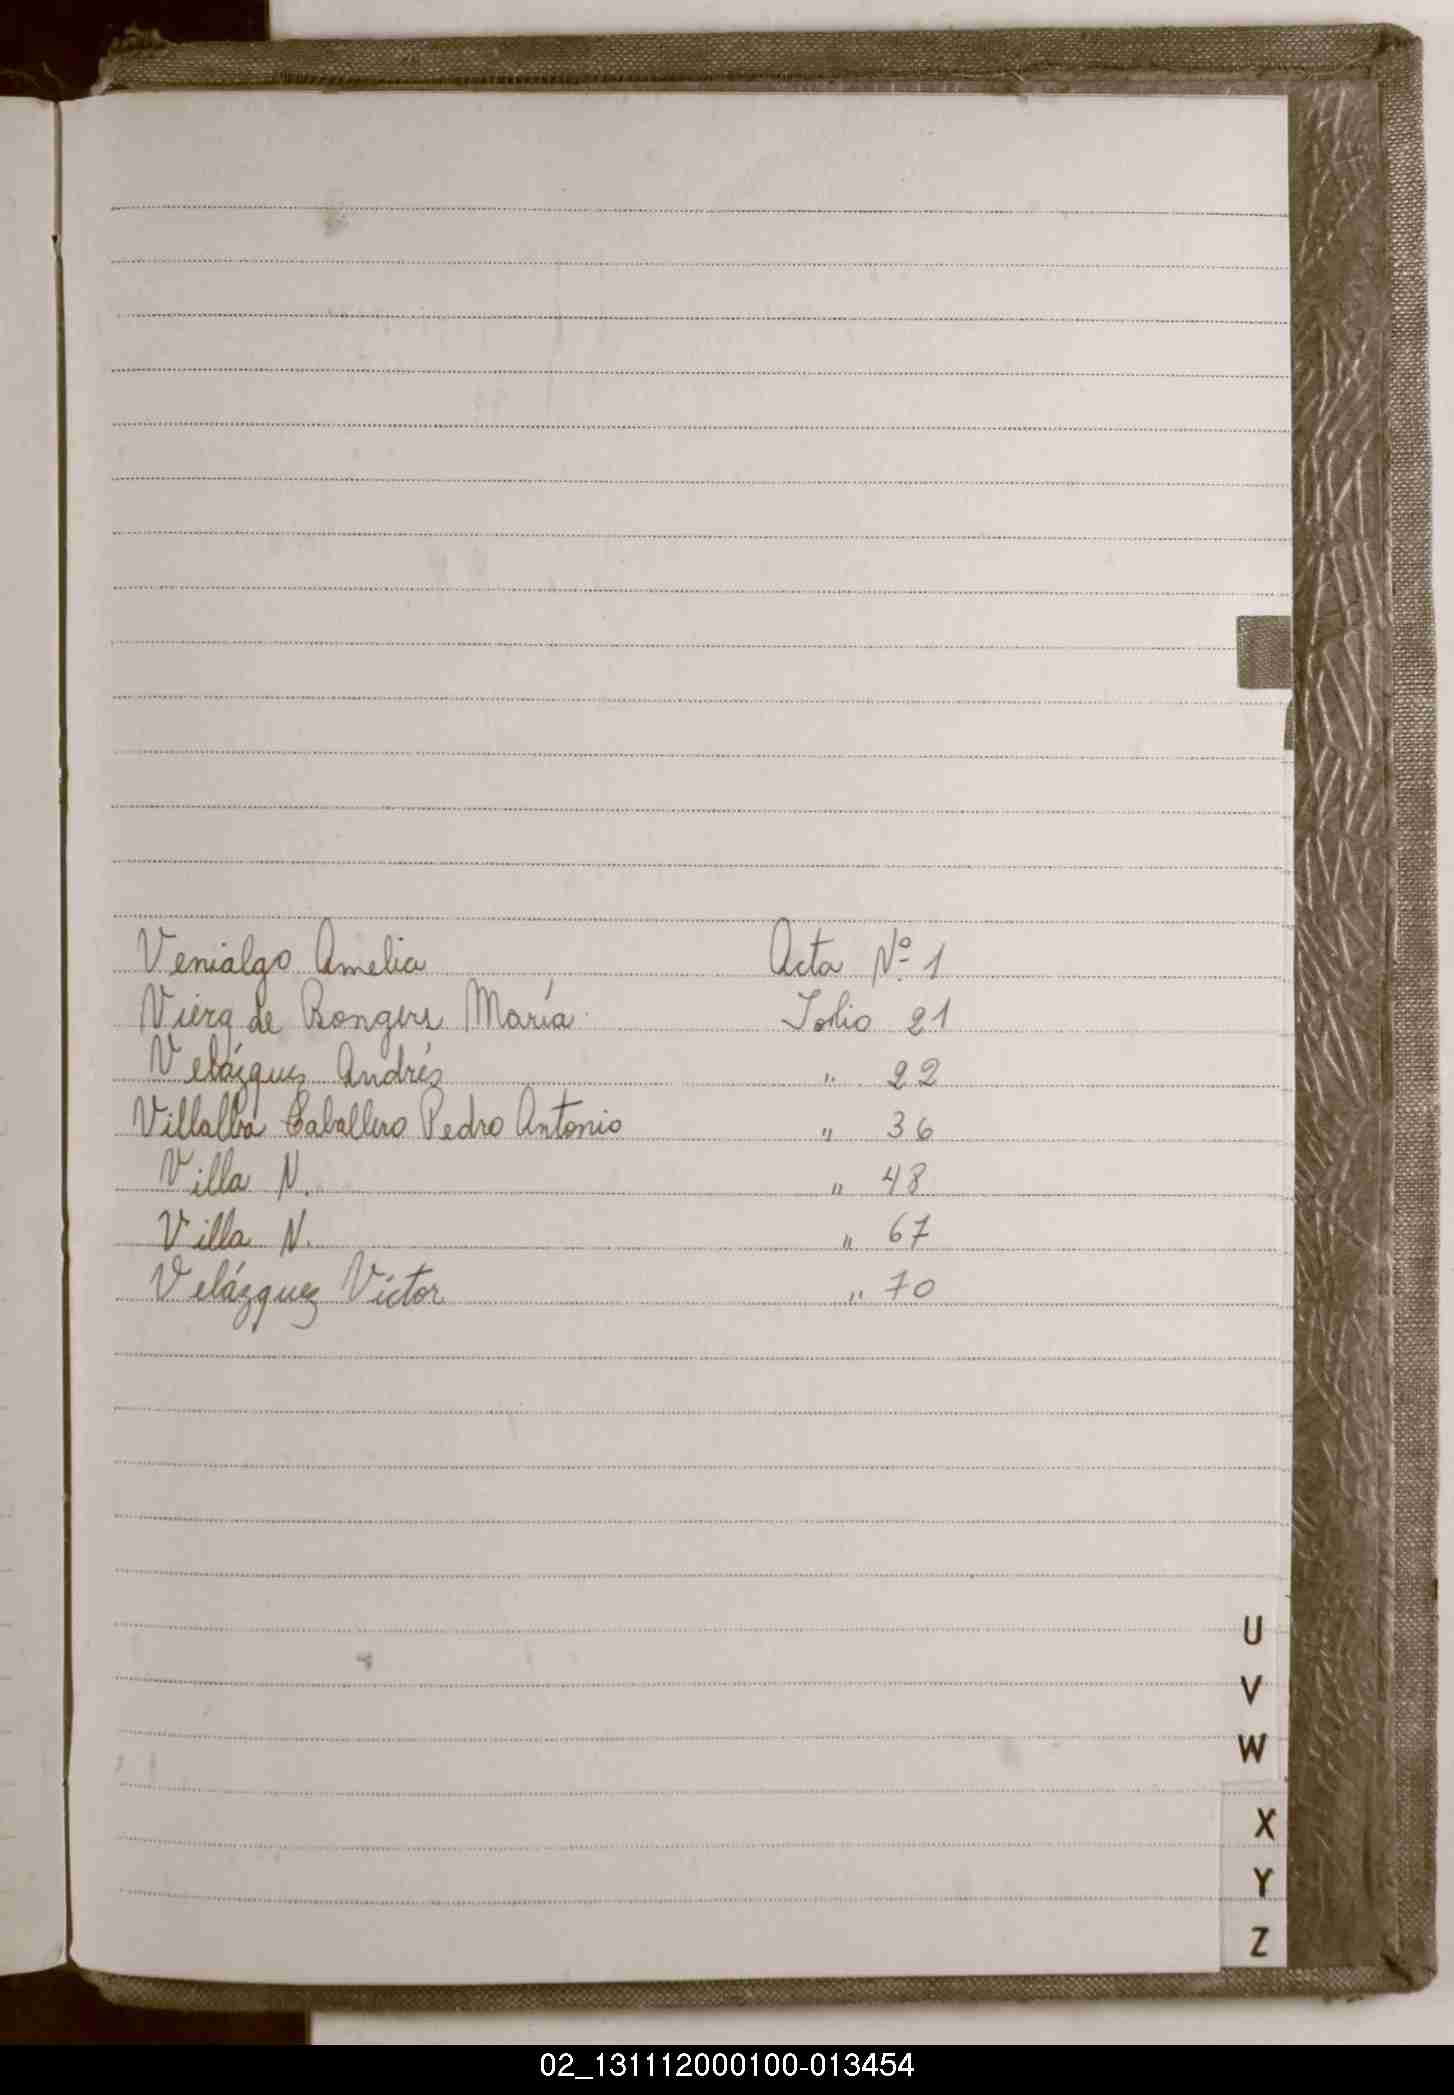 Venialgo Amelia Acta Nº 1
Viera de Bongers María Folio 21
Velázquez Andrés " 22
Villalba Caballero Pedro Antonio " 36
Villa N. " 48
Villa N. " 67
Velázquez Víctor " 70
U
V
W
X
Y
Z
02_131112000100-013454